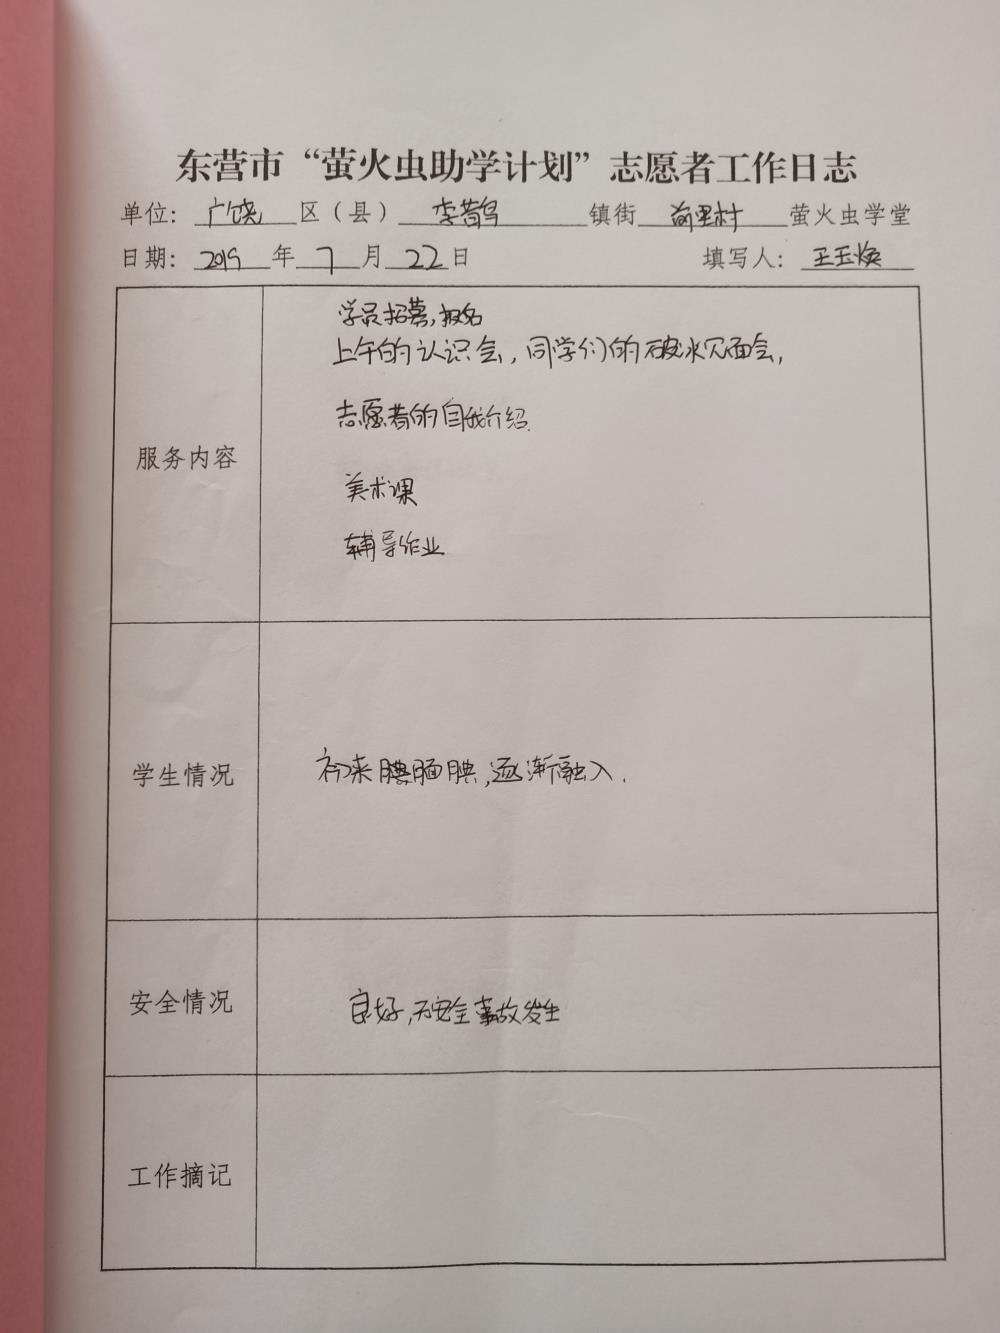 东营市“萤火虫助学计划”志愿者工作日志
单位：广饶区（县）李鹊镇街前里村萤火虫学堂
日期：2019年7月22日 填写人：王玉焕
服务内容
学员招募，报名
上午的认识会，同学们的破冰见面会，
志愿者的自我介绍.
美术课
辅导作业
学生情况
初来腼腆，逐渐融入.
安全情况
良好，无安全事故发生
工作摘记